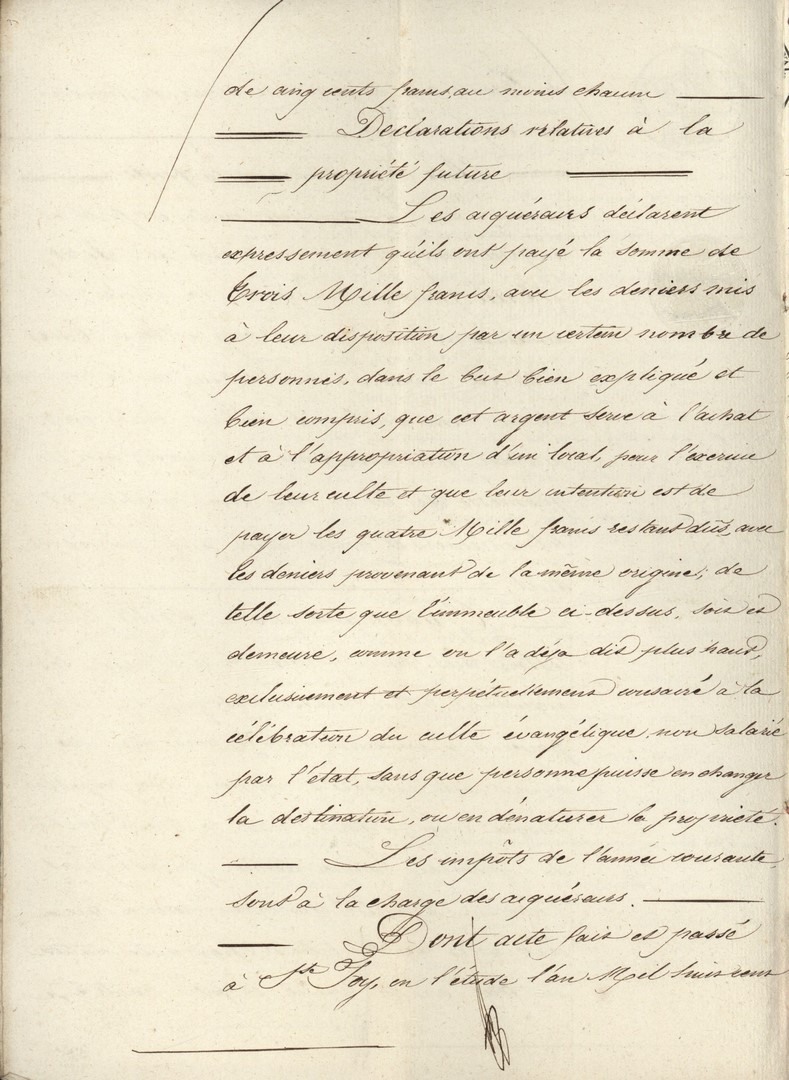 de cinq cents francs au moins chacun
Declarations relatives à la
propriété future
Les acquéreurs déclarent
expressement qu'ils ont payé la somme de
Trois Mille francs, avec les deniers mis
à leur disposition par un certain nombre de
personnes, dans le but bien expliqué et
bien compris, que cet argent serve à l'achat
et à l'appropriation d'un local, pour l'exercice
de leur culte et que leur intention est de
payer les quatre Mille francs restant dûs, avec
les deniers provenant de la même origine; de
telle sorte que l'immeuble ci-dessus, soit et
demeure, comme on l'a déja dit plus haut,
exclusivement et perpétuellement consacré à la
célébration du culte évangélique non salarié
par l'état, sans que personne puisse en changer
la destination, ou en dénaturer la propriété.
Les impôts de l'année courante
sont à la charge des acquéreurs.
Dont acte fait et passé
à Ste Foy, en l'étude l'an Mil huit cent